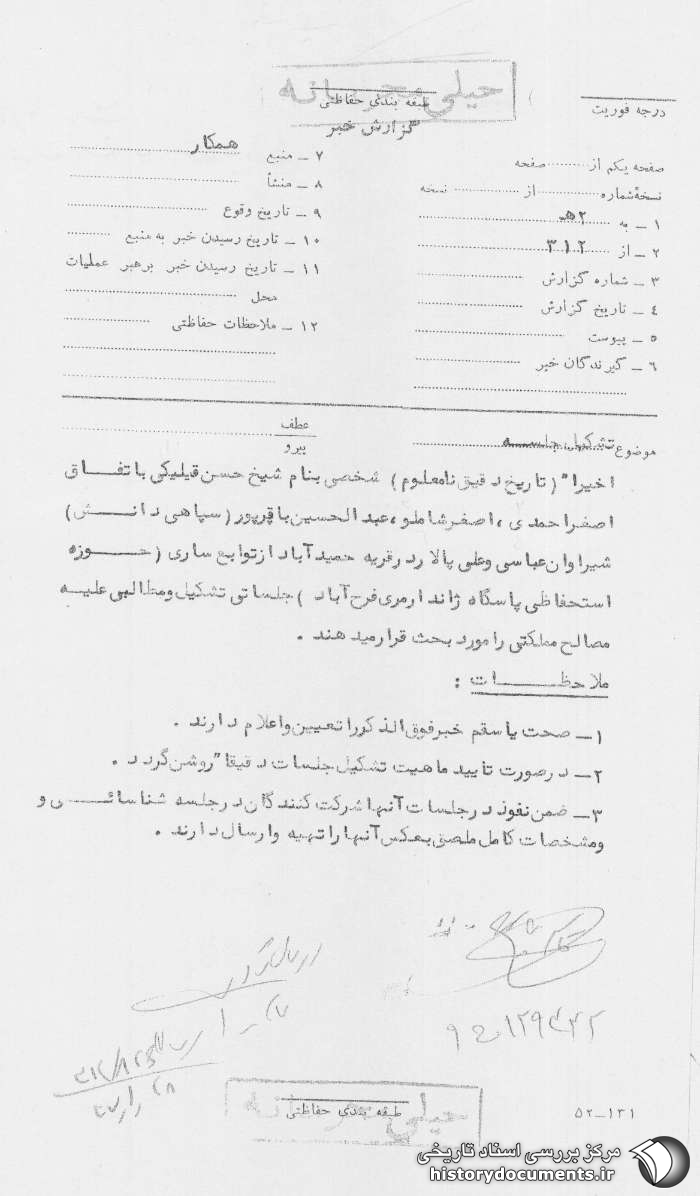 خیلی محرمانه
طبقه بندی حفاظتی
درجه فوریت
گزارش خبر
صفحه یکم از صفحه
نسخه شماره از نسخه
۱ ـ به ۲هـ
۲ ـ از ۳۱۲
۳ ـ شماره گزارش
۴ ـ تاریخ گزارش
۵ ـ پیوست
۶ ـ گیرندگان خبر
۷ ـ منبع همکار
۸ ـ منشأ
۹ ـ تاریخ وقوع
۱۰ ـ تاریخ رسیدن خبر به منبع
۱۱ ـ تاریخ رسیدن خبر برهبر عملیات
محل
۱۲ ـ ملاحظات حفاظتی
موضوع تشکیل جلسه
عطف
پیرو
اخیرا" (تاریخ دقیق نامعلوم) شخصی بنام شیخ حسن قیلیکی باتفـــاق
اصغر احمدی ، اصغر شاملو ، عبدالحسین باقرپور (سپاهی دانـــش)
شیراوان عباسی وعلی پالارد رقریه حمیدآباد ازتوابع ساری (حـــوزه
استحفاظی پاسگاه ژاندارمری فرح آباد ) جلساتی تشکیل ومطالبی علیـه
مصالح مملکتی را مورد بحث قرار میدهند .
ملاحظـــــات :
۱ـ صحت یا سقم خبر فوق الذکر را تعیین واعلام دارند .
۲ـ درصورت تایید ماهیت تشکیل جلسات دقیقا" روشن گردد .
۳ـ ضمن نفوذ در جلسات آنها شرکت کنندگان در جلسه شناسائـــی و
ومشخصات کامل ملصق بعکس آنها را تهیه وارسال دارند .
طبقه بندی حفاظتی
خیلی محرمانه
۱۳۱ــ۵۲
مرکز بررسی اسناد تاریخی
historydocuments.ir